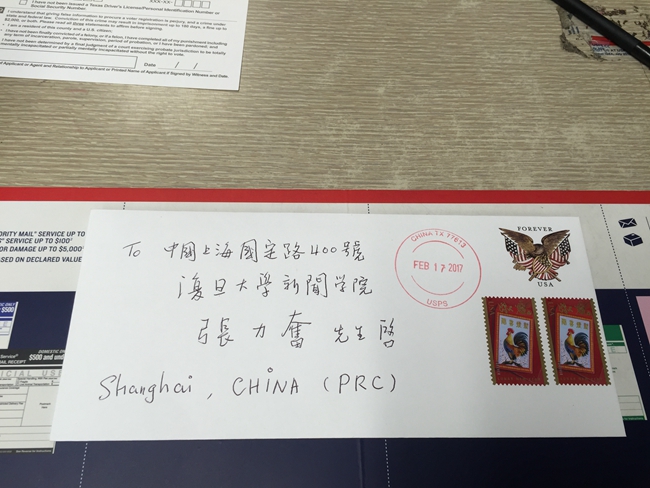 I have not been issued a Texas Driver's License/Personal Identification Number or
Social Security Number.
XXX-XX-
I understand that giving false information to procure a voter registration is perjury, and a crime under
state and federal law. Conviction of this crime may result in imprisonment up to 180 days, a fine up to
$2,000, or both. Please read all three statements to affirm before signing.
I am a resident of this county and a U.S. citizen.
I have not been finally convicted of a felony, or if a felon, I have completed all of my punishment including
any term of incarceration, parole, supervision, period of probation, or I have been pardoned, and
I have not been determined by a final judgment of a court exercising probate jurisdiction to be totally
mentally incapacitated or partially mentally incapacitated without the right to vote.
Date / /
of Applicant or Agent and Relationship to Applicant or Printed Name of Applicant if Signed by Witness and Date
ORITY MAIL® SERVICE UP TO
S® SERVICE UP TO $100¹
OR DAMAGE UP TO $5,000
ASED ON DECLARED VALUE
To 中國上海國定路400號
復旦大學新聞学院
張力奮 先生啓
Shanghai, CHINA (PRC)
CHINA TX 77613
FEB 17 2017
USPS
FOREVER
USA
$500
DOMESTIC ONLY
$500 and und
MAIL RECEIPT